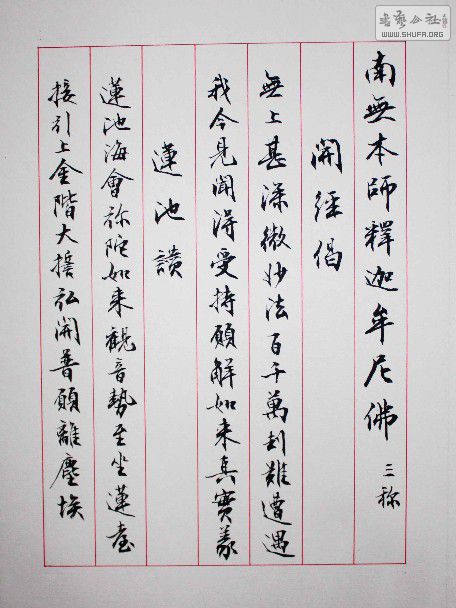 南無本師釋迦牟尼佛 三称
開經偈
無上甚深微妙法百千萬劫難遭遇
我今見聞得受持願解如來真實義
蓮池讚
蓮池海會弥陀如来觀音勢至坐蓮臺
接引上金階大誓弘開普願離塵埃
書藝公社
WWW.SHUFA.ORG